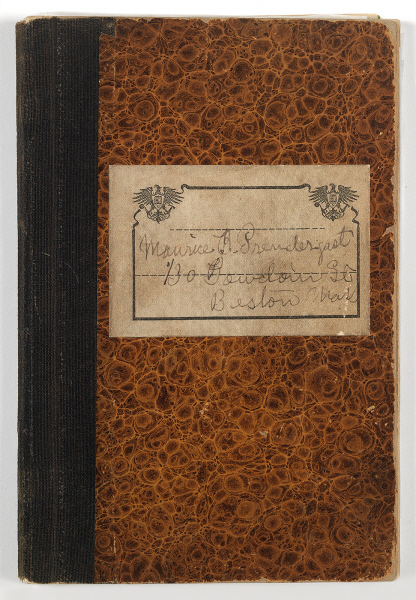 Maurice B. Prendergast
Bowdoin St
Boston Mas